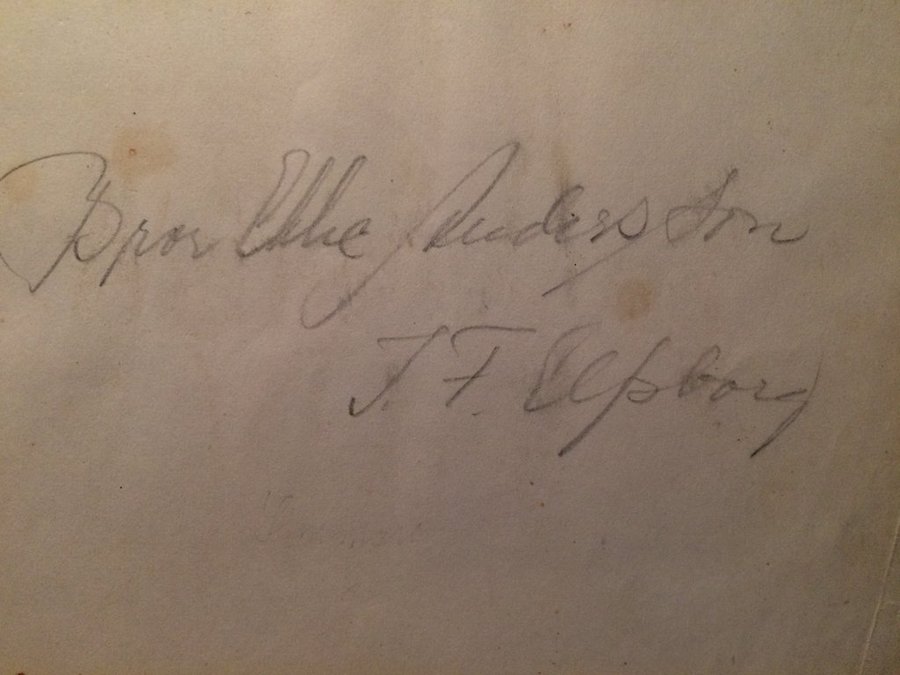 Bror Ebbe Anderson
I. F. Elfsborg